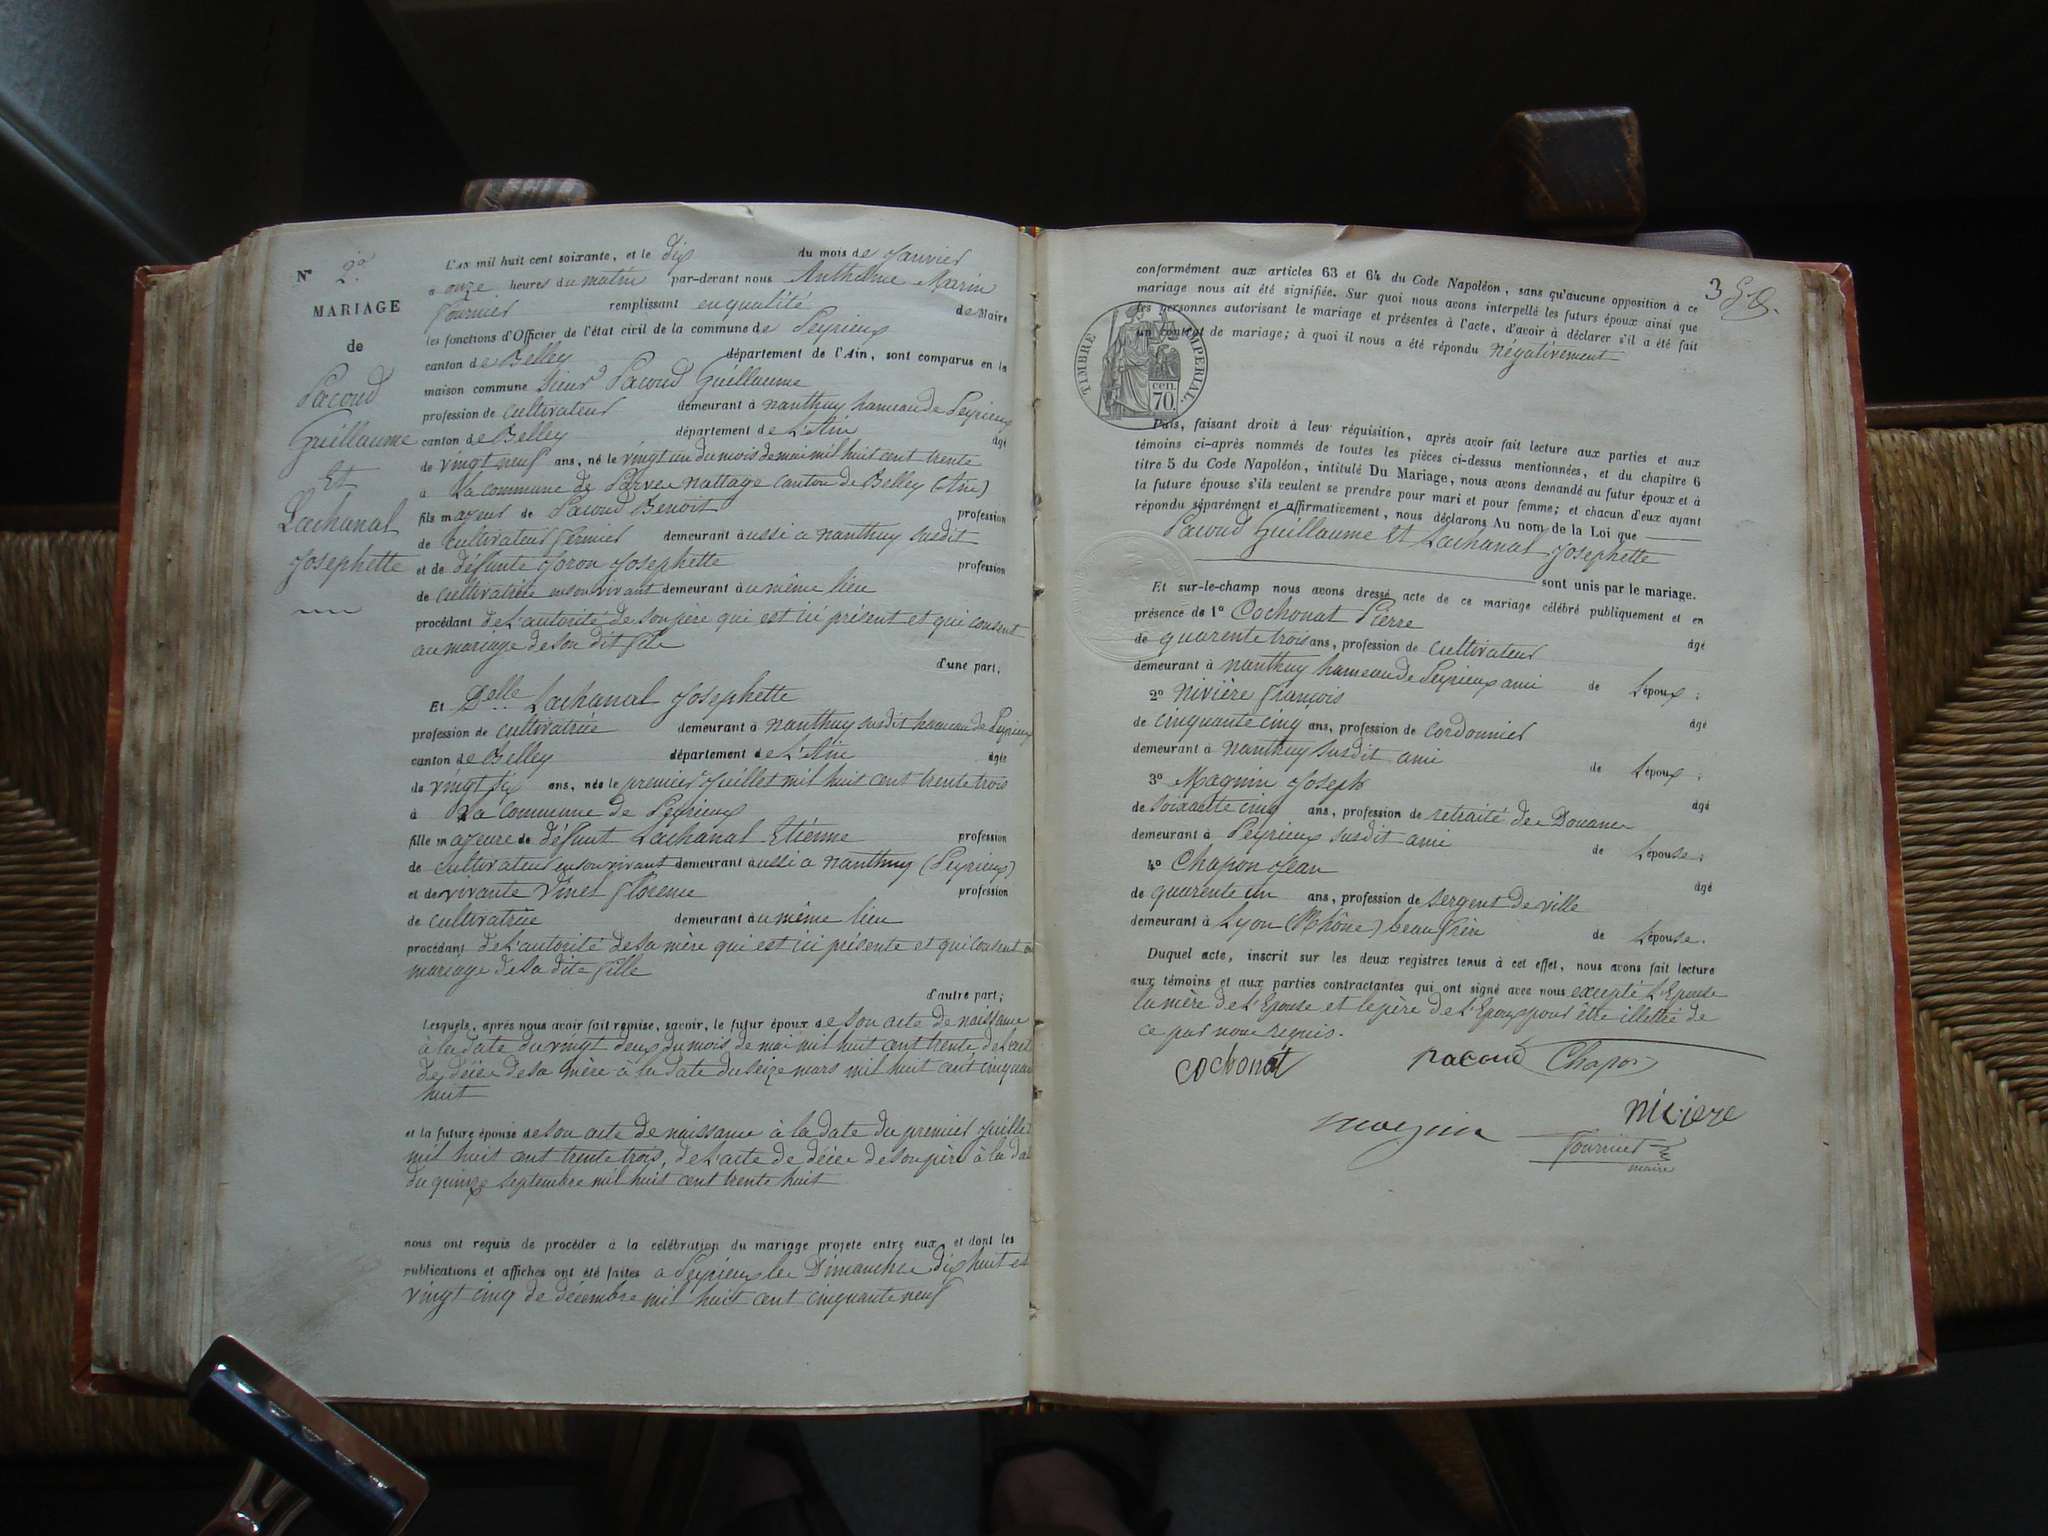 N° 2°
MARIAGE
de
Pacoud
Guillaume
Et
Lachanal
Josephette
L'an mil huit cent soixante, et le dix du mois de Janvier
a onze heures du matin par-devant nous Anthelme Marin
Fournier remplissant en qualité de Maire
les fonctions d'Officier de l'état civil de la commune de Peyrieux
canton de Belley département de l'Ain, sont comparus en la
maison commune Sieur Pacoud Guillaume
profession de cultivateur demeurant à nanthuy hameau de Peyrieux
canton de Belley département de L'Ain âgé
de vingt neuf ans, né le vingt un du mois de mai mil huit cent trente
à La commune de Parve nattage canton de Belley (Ain)
fils majeur de Pacoud Benoit profession
de cultivateur fermier demeurant aussi a nanthuy susdit
et de défunte Joron Josephette profession
de cultivatrice en son vivant demeurant au même lieu
procédant de L'autorité de son père qui est ici présent et qui consent
au mariage de son dit fils
d'une part,
Et Delle Lachanal Josephette
profession de cultivatrice demeurant à nanthuy susdit hameau de Peyrieux
canton de Belley département de L'Ain âgée
de vingt six ans, née le premier Juillet mil huit cent trente trois
à La commune de Peyrieux
fille majeure de défunt Lachanal Etienne profession
de cultivateur en son vivant demeurant aussi a nanthuy (Peyrieux)
et de vivante Vinet Florence profession
de cultivatrice demeurant au même lieu
procédant de L'autorité de sa mère qui est ici présente et qui consent au
mariage de sa dite fille
d'autre part;
Lesquels, après nous avoir fait remise, savoir, le futur époux de son acte de naissance
à la date du vingt deux du mois de mai mil huit cent trente, de L'acte
de décee de sa mère à la date du seize mars mil huit cent cinquante
huit
et la future épouse de son acte de naissance à la date du premier Juillet
mil huit cent trente trois, de L'acte de décee de son père à la date
du quinze septembre mil huit cent trente huit
nous ont requis de procéder à la célébration du mariage projeté entre eux, et dont les
publications et affiches ont été faites a Peyrieux les Dimanches dix huit et
vingt cinq de décembre mil huit cent cinquante neuf
3
conformément aux articles 63 et 64 du Code Napoléon, sans qu'aucune opposition à ce
mariage nous ait été signifiée. Sur quoi nous avons interpellé les futurs époux ainsi que
les personnes autorisant le mariage et présentes à l'acte, d'avoir à déclarer s'il a été fait
un contrat de mariage; à quoi il nous a été répondu négativement
TIMBRE IMPERIAL.
70 cen.
Puis, faisant droit à leur réquisition, après avoir fait lecture aux parties et aux
témoins ci-après nommés de toutes les pièces ci-dessus mentionnées, et du chapitre 6
titre 5 du Code Napoléon, intitulé Du Mariage, nous avons demandé au futur époux et à
la future épouse s'ils veulent se prendre pour mari et pour femme; et chacun d'eux ayant
répondu séparément et affirmativement, nous déclarons Au nom de la Loi que
Pacoud Guillaume Et Lachanal Josephette
sont unis par le mariage.
Et sur-le-champ nous avons dressé acte de ce mariage célébré publiquement et en
présence de 1° Cochonat Pierre âgé
de quarente trois ans, profession de cultivateur
demeurant à nanthuy hameau de Peyrieux ami de L'époux;
2° nivière François âgé
de cinquante cinq ans, profession de cordonnier
demeurant à nanthuy susdit ami de L'époux;
3° Magnin Joseph âgé
de soixante cinq ans, profession de retraité des Douanes
demeurant à Peyrieux susdit ami de L'épouse;
4° Chapon Jean âgé
de quarente un ans, profession de sergent de ville
demeurant à Lyon (Rhône) beau frère de L'épouse.
Duquel acte, inscrit sur les deux registres tenus à cet effet, nous avons fait lecture
aux témoins et aux parties contractantes qui ont signé avec nous excepté L'Epouse
la mère de L'Epouse et le père de L'Epoux pour être illettré de
ce par nous requis.
cochonat pacoud Chapon
magnin niviere
Fournier
maire